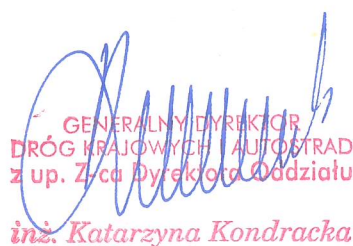 GENERALNY DYREKTOR
DRÓG KRAJOWYCH I AUTOSTRAD
z up. Z-ca Dyrektora Oddziału
inż. Katarzyna Kondracka